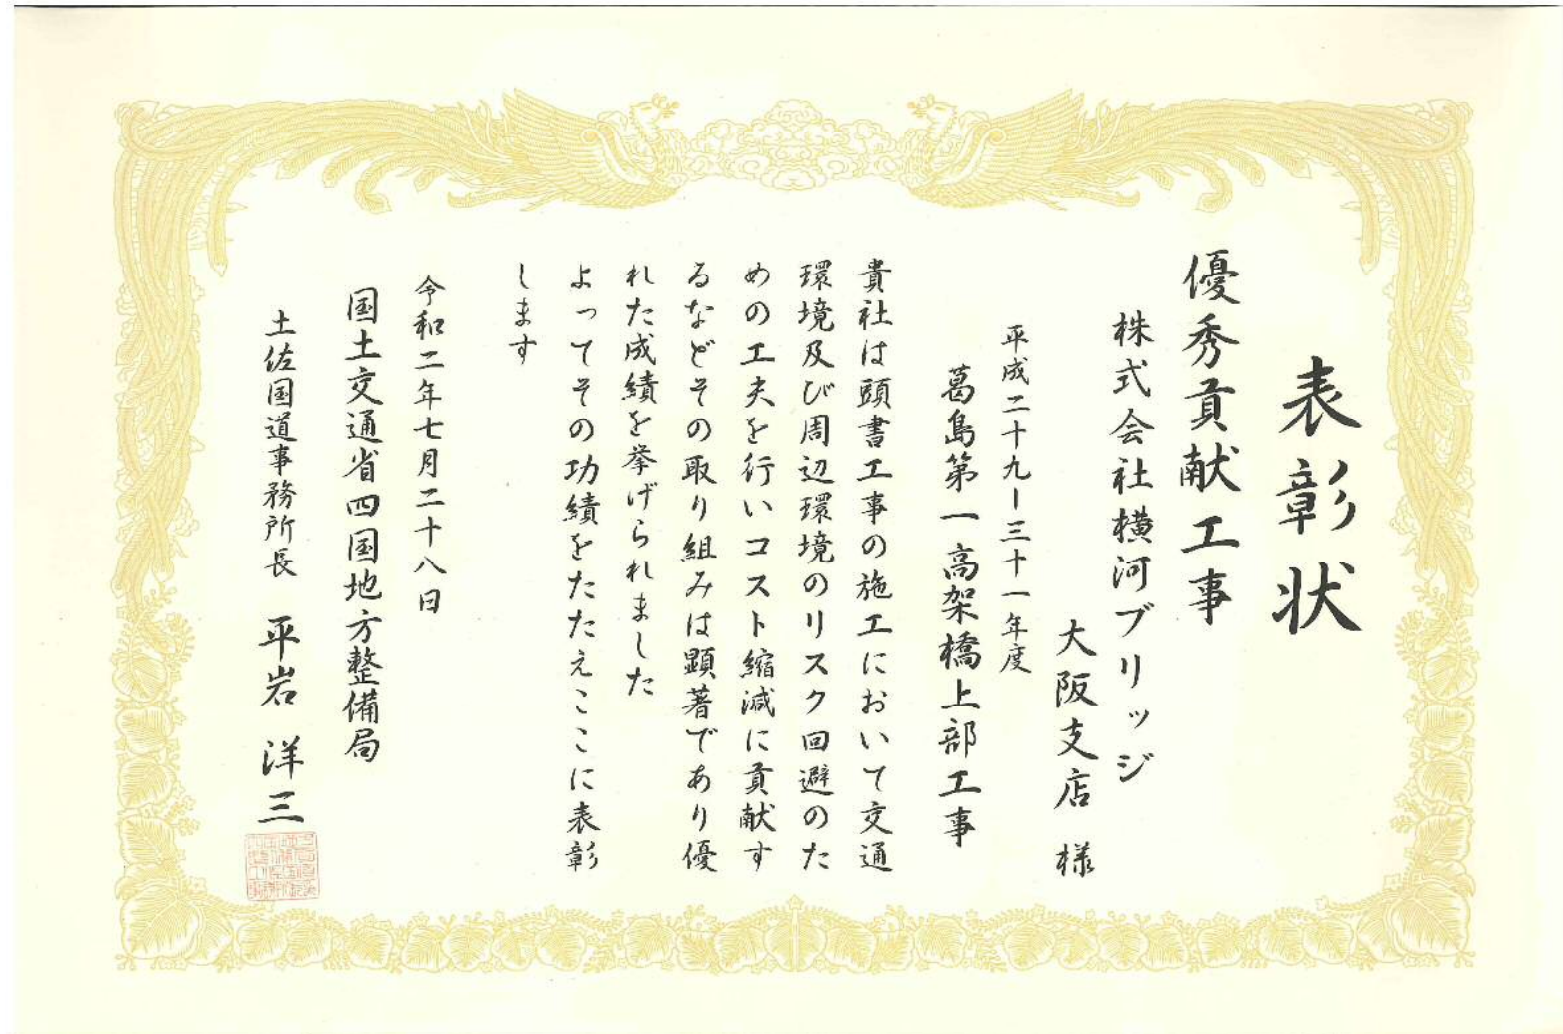 表彰状
優秀貢献工事
株式会社横河ブリッジ
大阪支店 様
平成二十九ー三十一年度
葛島第一高架橋上部工事
貴社は頭書工事の施工において交通
環境及び周辺環境のリスク回避のた
めの工夫を行いコスト縮減に貢献す
るなどその取り組みは顕著であり優
れた成績を挙げられました
よってその功績をたたえここに表彰
します
令和二年七月二十八日
国土交通省四国地方整備局
土佐国道事務所長 平岩 洋三